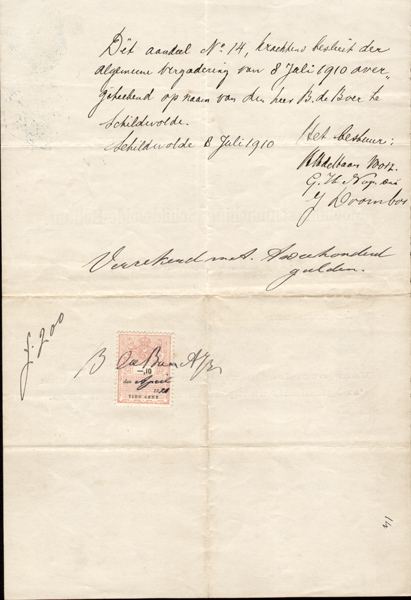 Dit aandeel No. 14, krachtens besluit der
algemeene vergadering van 8 Juli 1910 over„
geteekend op naam van den heer B. de Boer te
Schildwolde.
Schildwolde 8 Juli 1910
Het bestuur:
Voorz.
G. H.
J Doornbos
Verzekerd met. tweehonderd
gulden.
f. 200
B de Boer
-,10
den April
TIEN CENT
14